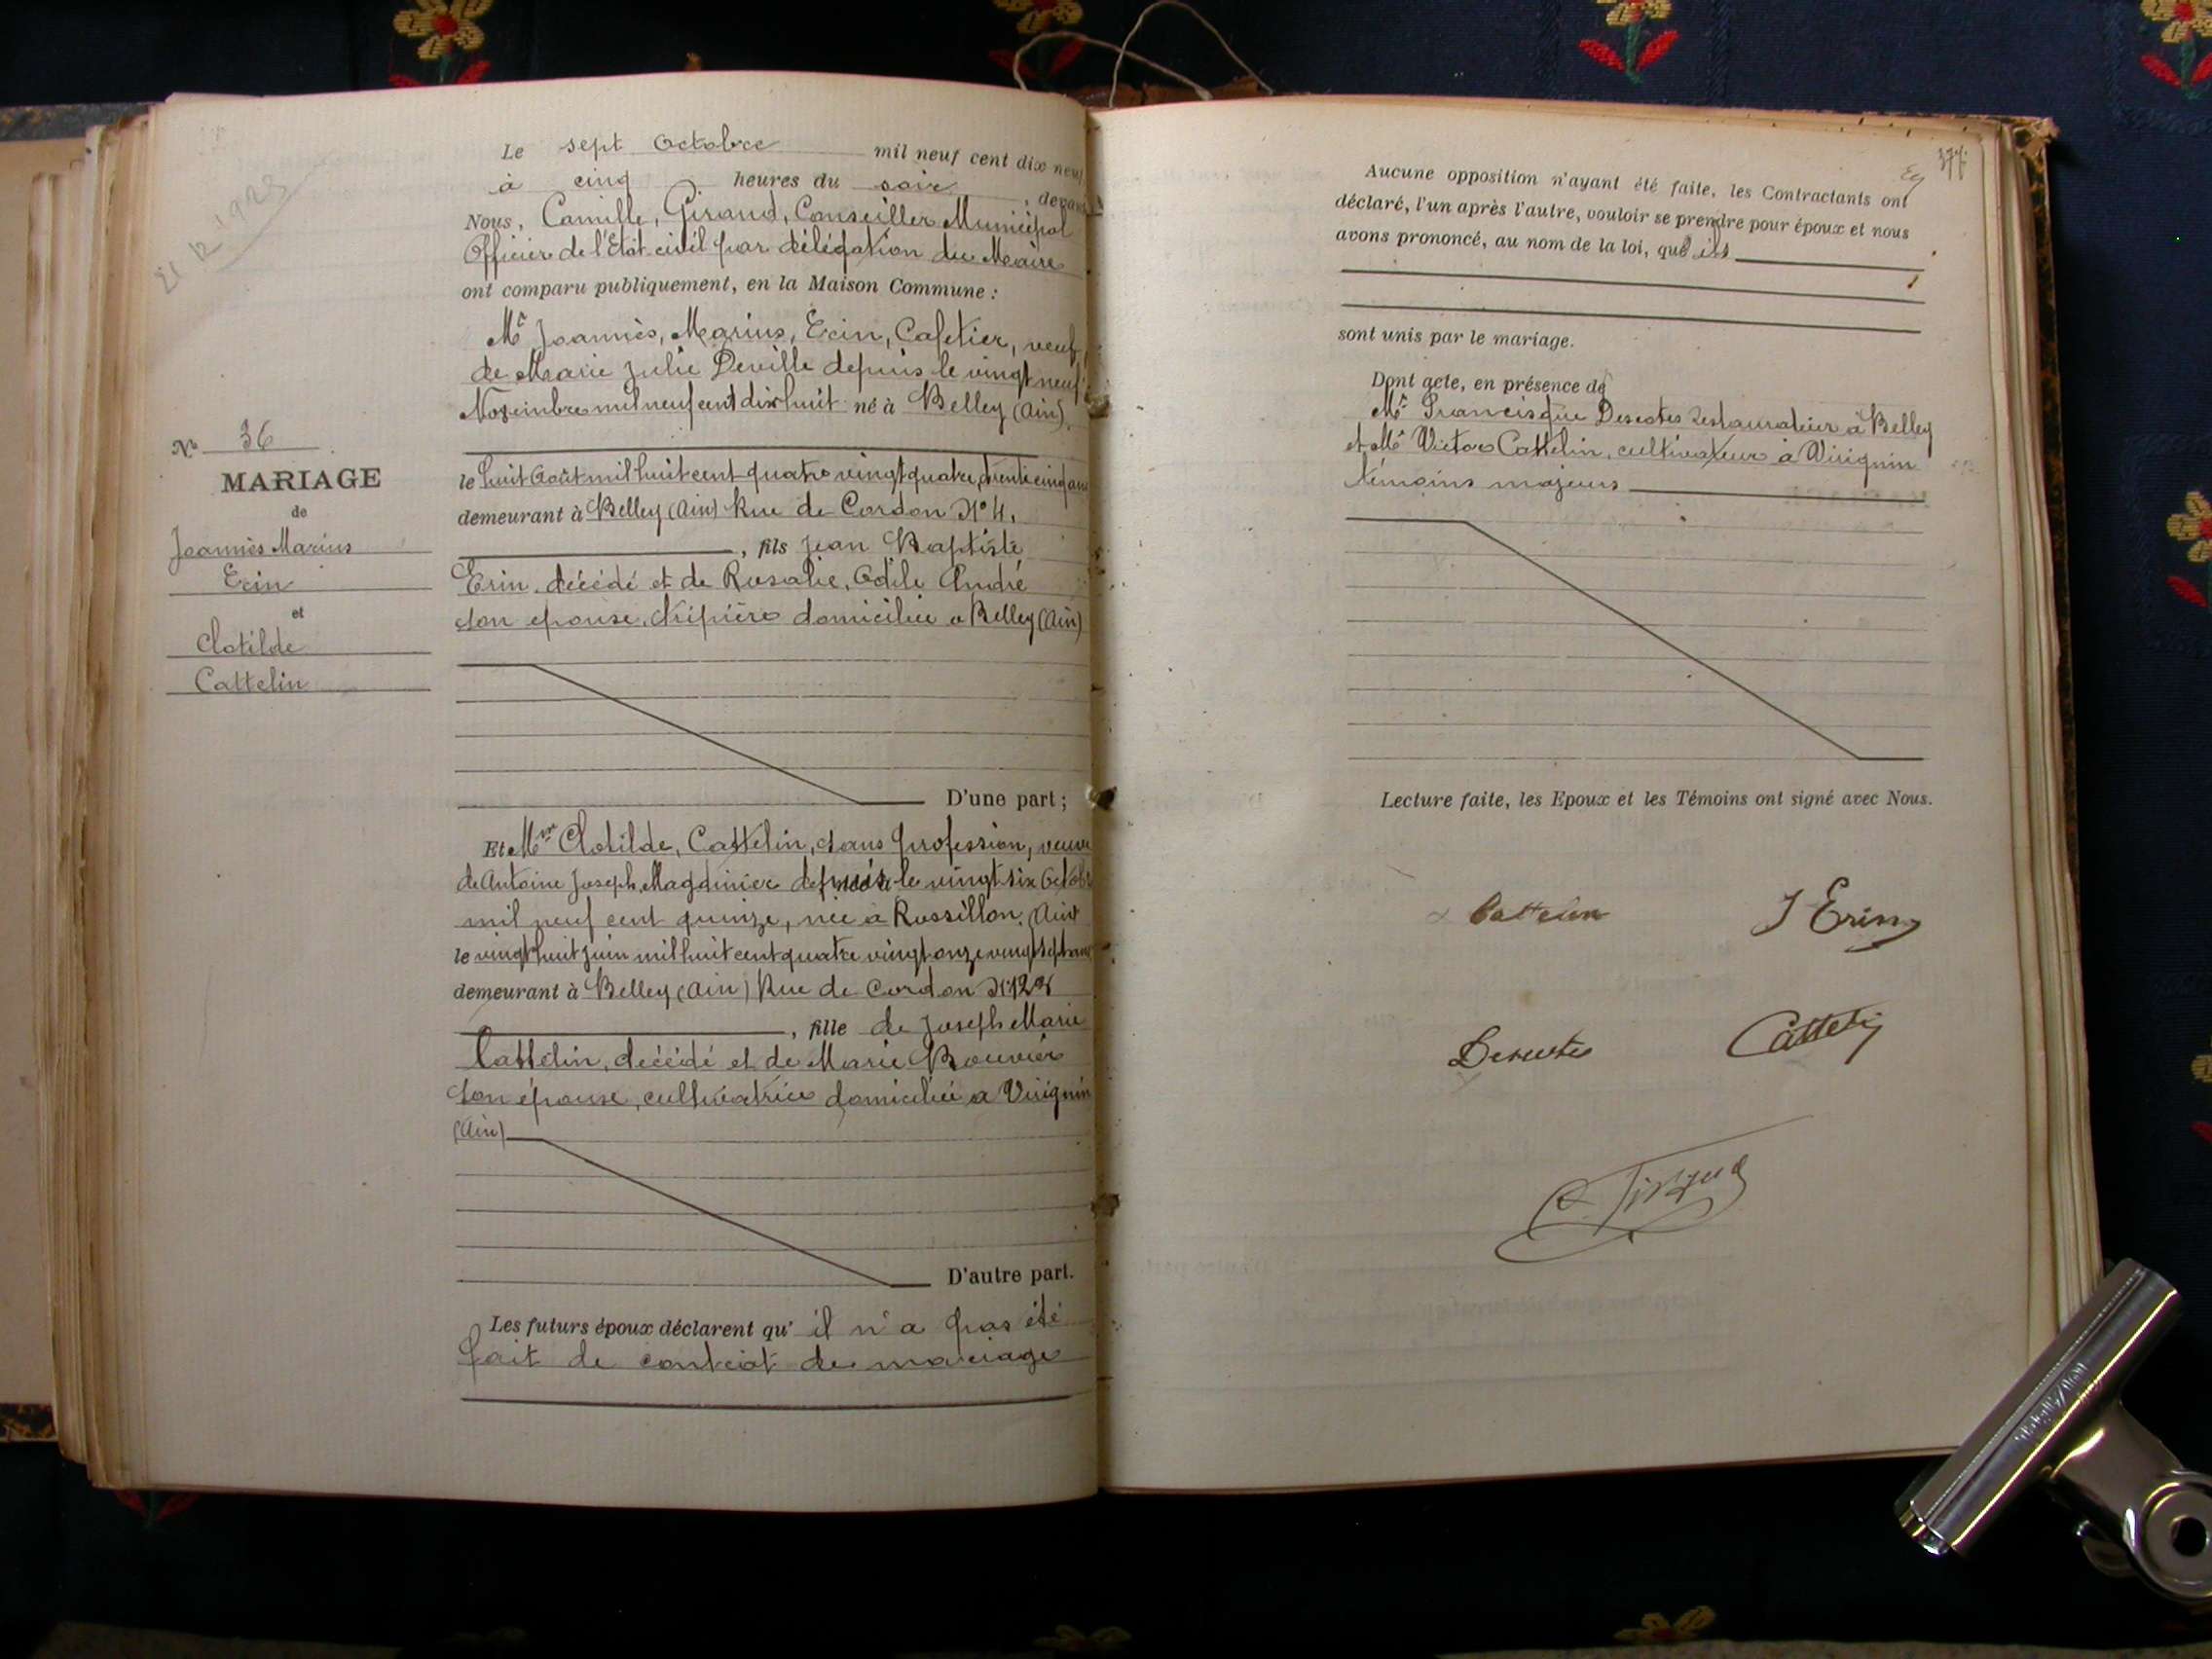 Le sept Octobre mil neuf cent dix neuf
à cinq heures du soir, devant
Nous, Camille, Girand, Conseiller Municipal
Officier de l'Etat civil par délégation du Maire
ont comparu publiquement, en la Maison Commune :
Mr Joannès, Marius, Erin, Cafetier, veuf
de Marie Julie Deville depuis le vingt neuf
Novembre mil neuf cent dix huit né à Belley (Ain).
le huit Août mil huit cent quatre vingt quatre, trente cinq ans
demeurant à Belley (Ain) Rue de Cordon N° 4,
, fils Jean Baptiste
Erin, décédé et de Rosalie, Odile André
son epouse, domiciliée a Belley (Ain)
D'une part ;
Et Mme Clotilde, Cattelin, sans profession, veuve
de Antoine Joseph Magdinier depuis le vingt six Octobre
mil neuf cent quinze, née à Rossillon (Ain)
le vingt huit juin mil huit cent quatre vingt onze vingt sept ans
demeurant à Belley (Ain) Rue de Cordon
, fille de Joseph Marie
Cattelin, décédé et de Marie Bouvier
son épouse, cultivatrice domiciliée a Virignin
(Ain)
D'autre part.
Les futurs époux déclarent qu' il n'a pas été
fait de contrat de mariage
N° 36
MARIAGE
de
Joannès Marius
Erin
et
Clotilde
Cattelin
377
Aucune opposition n'ayant été faite, les Contractants ont
déclaré, l'un après l'autre, vouloir se prendre pour époux et nous
avons prononcé, au nom de la loi, que ils
sont unis par le mariage.
Dont acte, en présence de
Mr Francisque Descotes restaurateur à Belley
et Mr Victor Cattelin, cultivateur à Virignin
témoins majeurs
Lecture faite, les Epoux et les Témoins ont signé avec Nous.
Cattelin J Erin
Descotes Cattelin